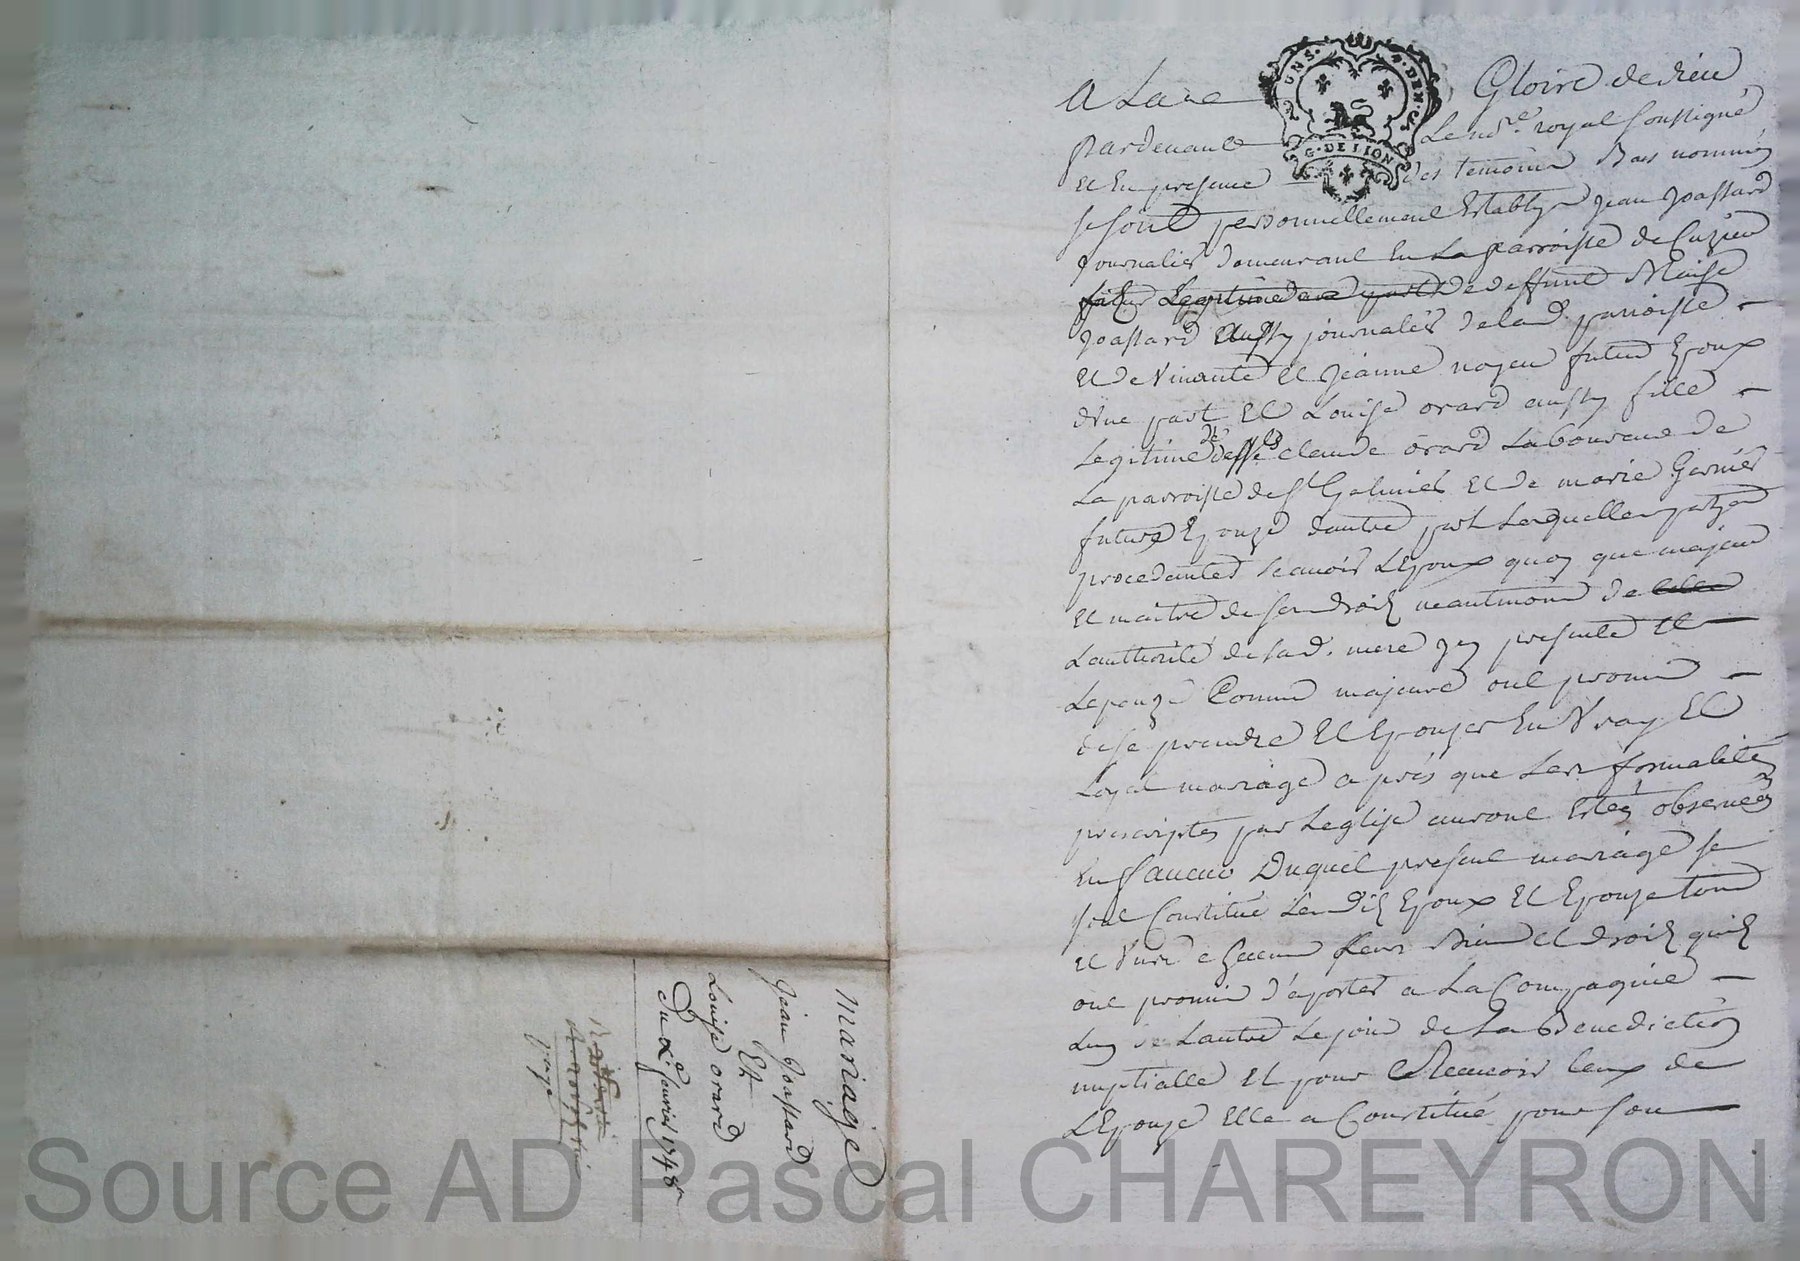 A La Gloire de dieu
pardevant Le nore royal soussigné
et En presence des temoins Bas nommés
se sont personnellement Establys Jean Joassard
Journalier demeurant En La parroisse de Cuzieu
fils Legitime de deffunt Blaise
Joassard Aussy journalier de lad. parroisse
et de vivante et Jeanne noyer futur Epoux
d'Une part Et Louise orard aussy fille
Legitime de Claude orard Laboureur de
La parroisse de St Galmier et de marie Garnier
future Epouze dautre part Lesquelles partyes
procedantes scavoir L'Epoux quoy que majeur
et maitre de ses droits neantmoins de
L'authorité de sad. mere icy presente et
Lepouze Comme majeure ont promis
de se prendre et Epouzer En Vray Et
Loyal mariage a prés que Les formalités
prescriptes par Leglise auront Estés observées
En faveur Duquel present mariage se
sont Constitué Lesdits Epoux et Epouze tous
et Uns chacuns Leurs Biens et droits quils
ont promis d'aporter a La Compagnie
Lun de Lautre Le jour de La Benediction
nuptialle et pour Recevoir Ceux de
L'Epouze Elle a Constitué pour son
mariage
Jean Joassard
Et
Louise orard
Du 2e fevrier 1748
2 UNS. 4. DEN. G. DE LION
Source AD Pascal CHAREYRON